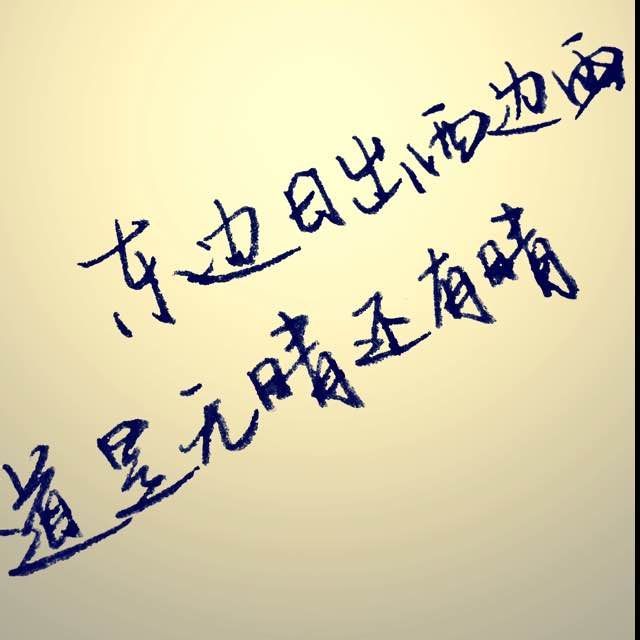 东边日出西边雨
道是无晴还有晴